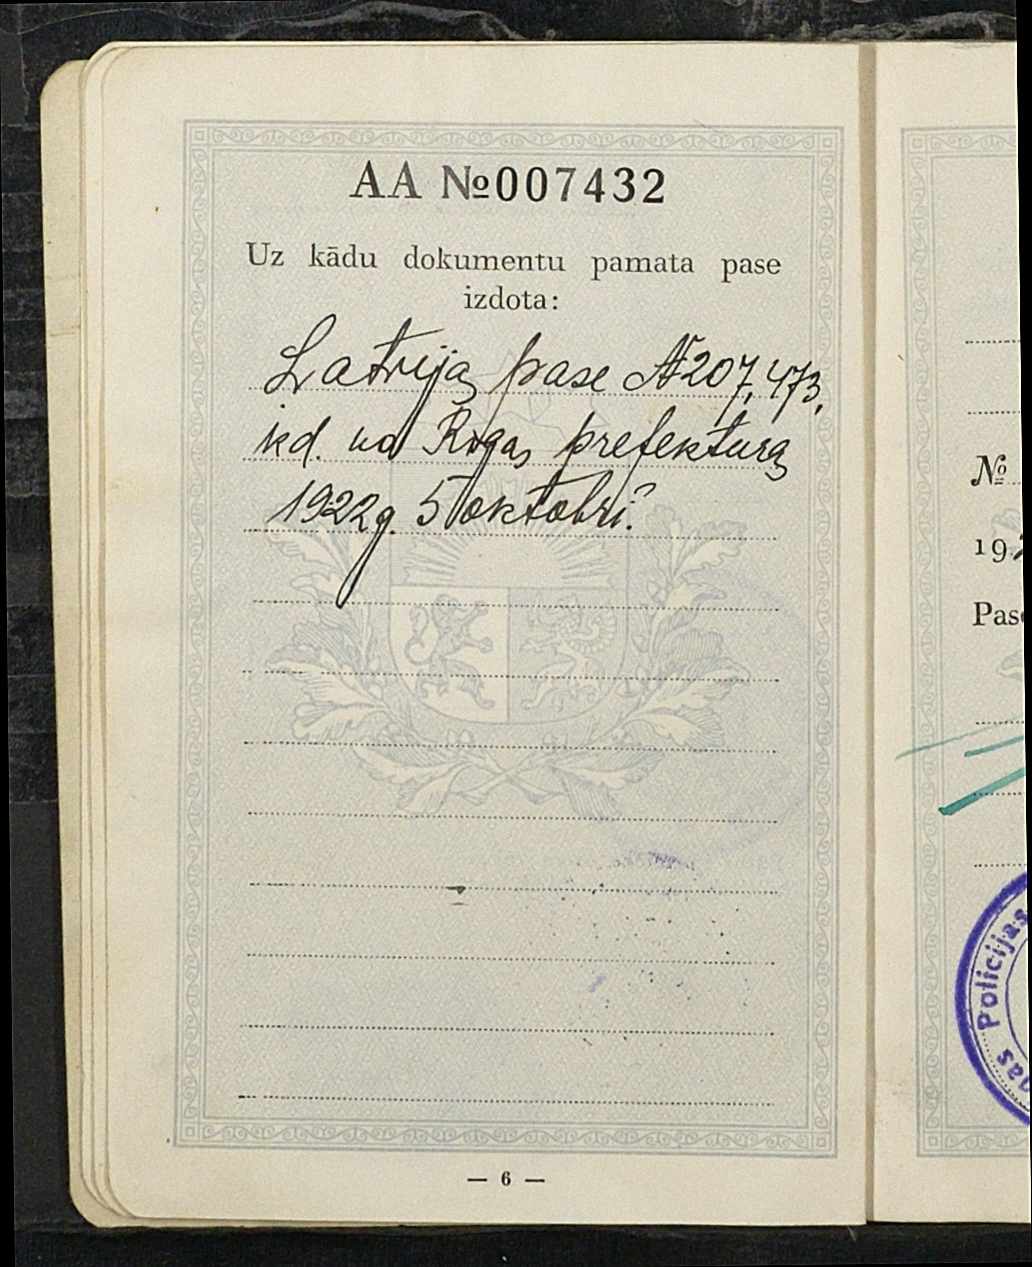 AA №007432
Uz kādu dokumentu pamata pase
izdota:
Latvijas pase № 207,473,
izd. no Rīgas prefekturas
1922g. 5 oktobrī.
— 6 —
№
19
Pas
Policijas
gas